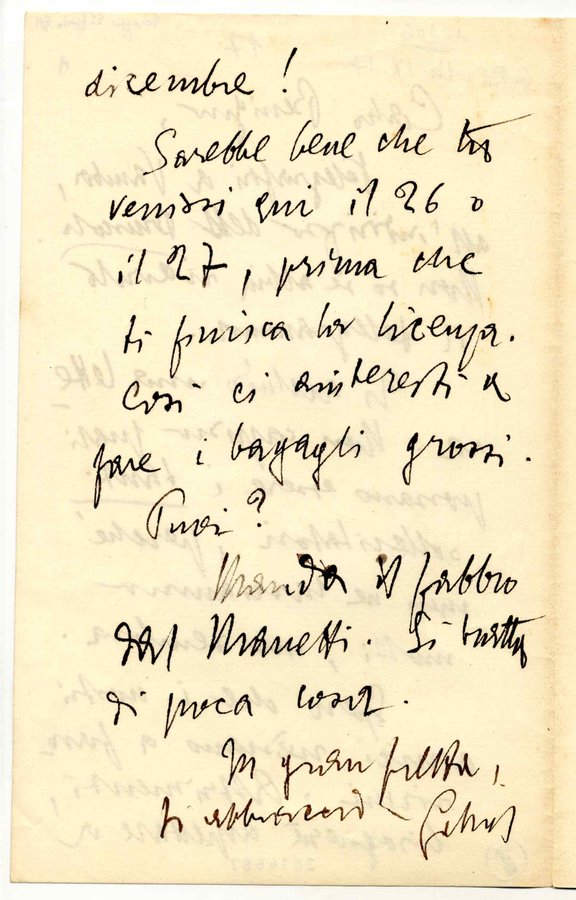 dicembre !
Sarebbe bene che tu
venissi qui il 26 o
il 27, prima che
ti finisca la licenza.
Così ci aiuteresti a
fare i bagagli grossi.
Puoi?
Manda il fabbro
dal Manetti. Si tratta
di poca cosa.
In gran fretta,
ti abbraccio